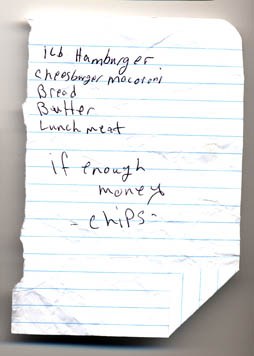 1Lb Hamburger
cheesburger macoroni
Bread
Butter
Lunch meat
if enough
money
- chips -